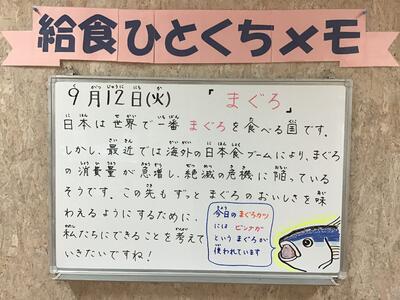 給食ひとくちメモ
9月12日(火) 「まぐろ」
日本は世界で一番 まぐろを食べる国です。
しかし、最近では海外の日本食ブームにより、まぐろ
の消費量が急増し、絶滅の危機に陥っている
そうです。この先もずっとまぐろのおいしさを味
わえるようにするために、
私たちにできることを考えて
いきたいですね!
今日のまぐろカツ
には ビンナガ
という まぐろが
使われています